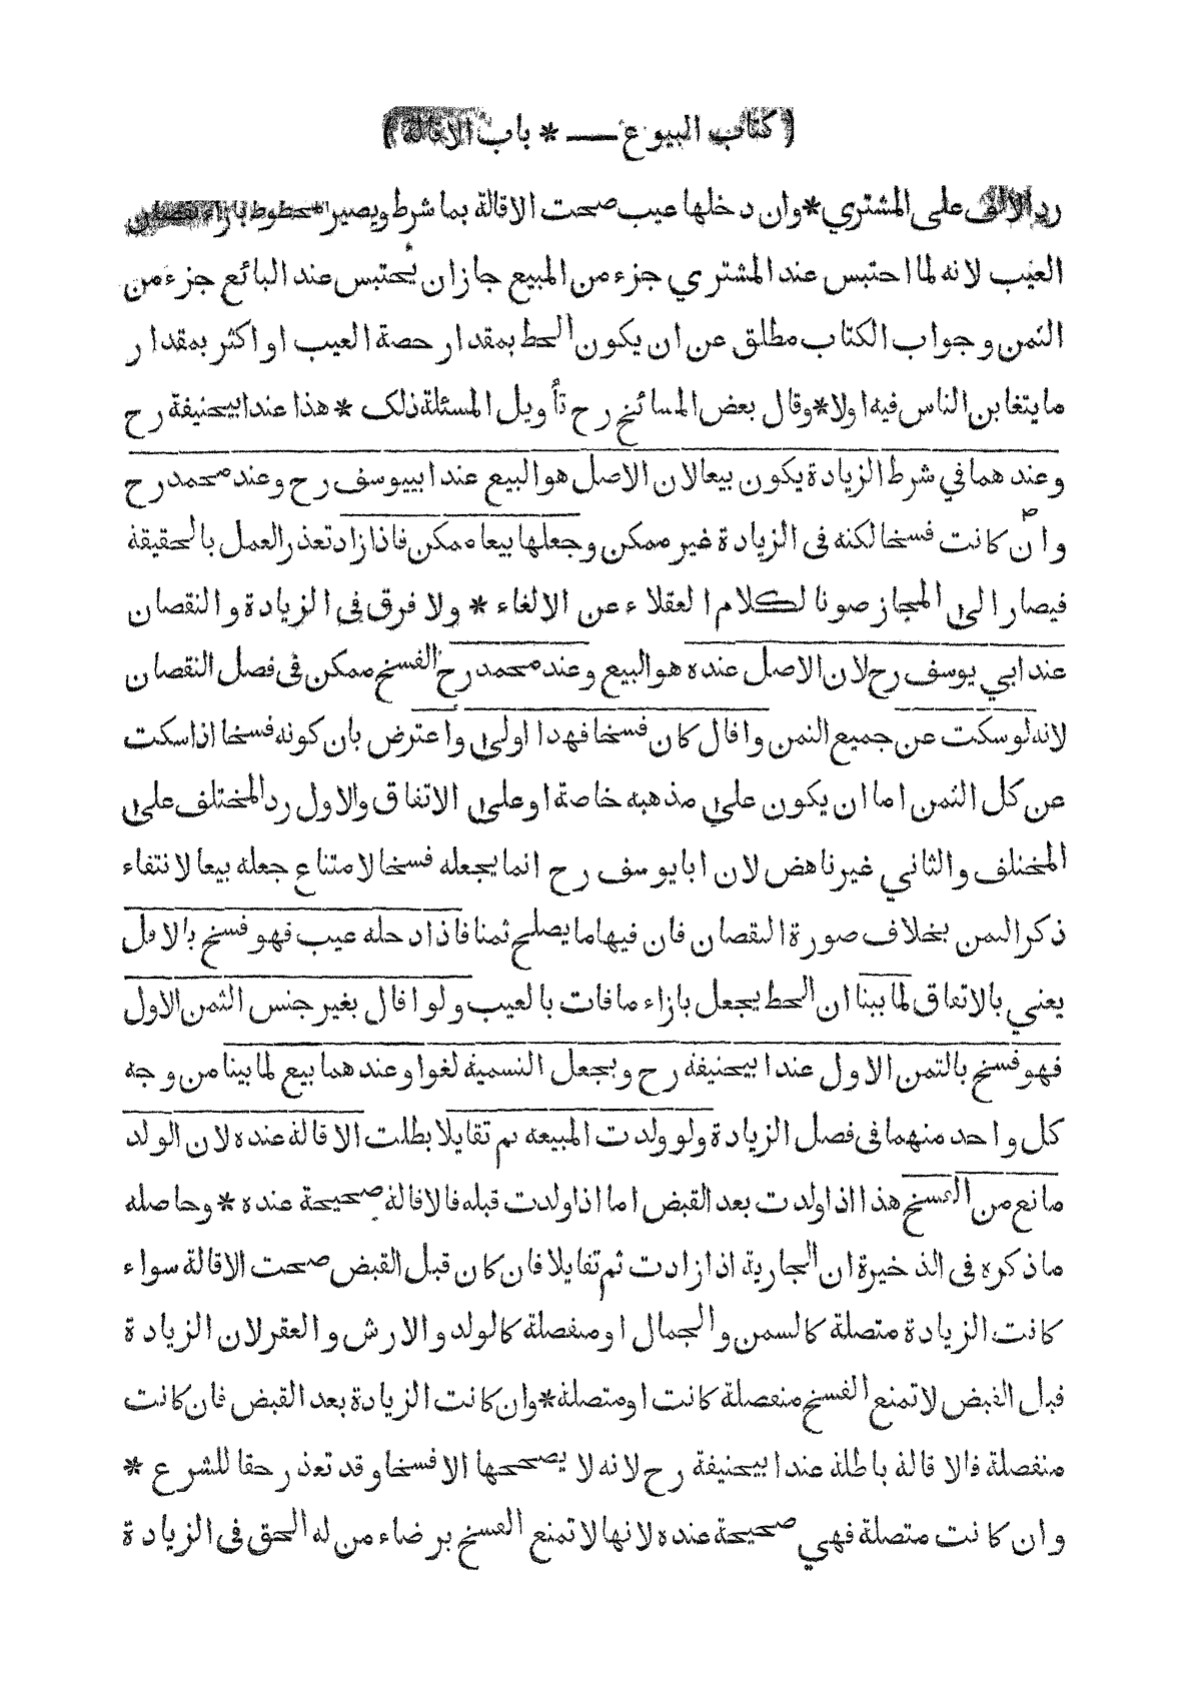 ( كتاب البيوع — * باب الاقالة )
رد الالف على المشتري * وان دخلها عيب صحت الاقالة بما شرط ويصير المحطوط بازاء نقصان
العيب لانه لما احتبس عند المشتري جزء من المبيع جاز ان يحتبس عند البائع جزء من
الثمن وجواب الكتاب مطلق عن ان يكون الحط بمقدار حصة العيب او اكثر بمقدار
ما يتغابن الناس فيه اولا * وقال بعض المشائخ رح تأويل المسئلة ذلك * هذا عند ابيحنيفة رح
وعندهما في شرط الزيادة يكون بيعا لان الاصل هو البيع عند ابييوسف رح وعند محمد رح
وان كانت فسخا لكنه فى الزيادة غير ممكن وجعلها بيعا ممكن فاذا زاد تعذر العمل بالحقيقة
فيصار الى المجاز صونا لكلام العقلاء عن الالغاء * ولا فرق فى الزيادة والنقصان
عند ابي يوسف رح لان الاصل عنده هو البيع وعند محمد رح الفسخ ممكن فى فصل النقصان
لانه لو سكت عن جميع الثمن واقال كان فسخا فهذا اولى واعترض بان كونه فسخا اذا سكت
عن كل الثمن اما ان يكون على مذهبه خاصة او على الاتفاق والاول رد المختلف على
المختلف والثاني غير ناهض لان ابا يوسف رح انما يجعله فسخا لامتناع جعله بيعا لانتفاء
ذكر الثمن بخلاف صورة النقصان فان فيها ما يصلح ثمنا فاذا دخله عيب فهو فسخ بالاول
يعني بالاتفاق لما بينا ان الحط يجعل بازاء ما فات بالعيب ولو اقال بغير جنس الثمن الاول
فهو فسخ بالثمن الاول عند ابيحنيفة رح ويجعل التسمية لغوا وعندهما بيع لما بينا من وجه
كل واحد منهما فى فصل الزيادة ولو ولدت المبيعة ثم تقايلا بطلت الاقالة عنده لان الولد
مانع من الفسخ هذا اذا ولدت بعد القبض اما اذا ولدت قبله فالاقالة صحيحة عنده * وحاصله
ما ذكره فى الذخيرة ان الجارية اذا زادت ثم تقايلا فان كان قبل القبض صحت الاقالة سواء
كانت الزيادة متصلة كالسمن والجمال او منفصلة كالولد والارش والعقر لان الزيادة
قبل القبض لا تمنع الفسخ منفصلة كانت او متصلة * وان كانت الزيادة بعد القبض فان كانت
منفصلة فالاقالة باطلة عند ابيحنيفة رح لانه لا يصححها الا فسخا وقد تعذر حقا للشرع *
وان كانت متصلة فهي صحيحة عنده لانها لا تمنع الفسخ برضاء من له الحق فى الزيادة